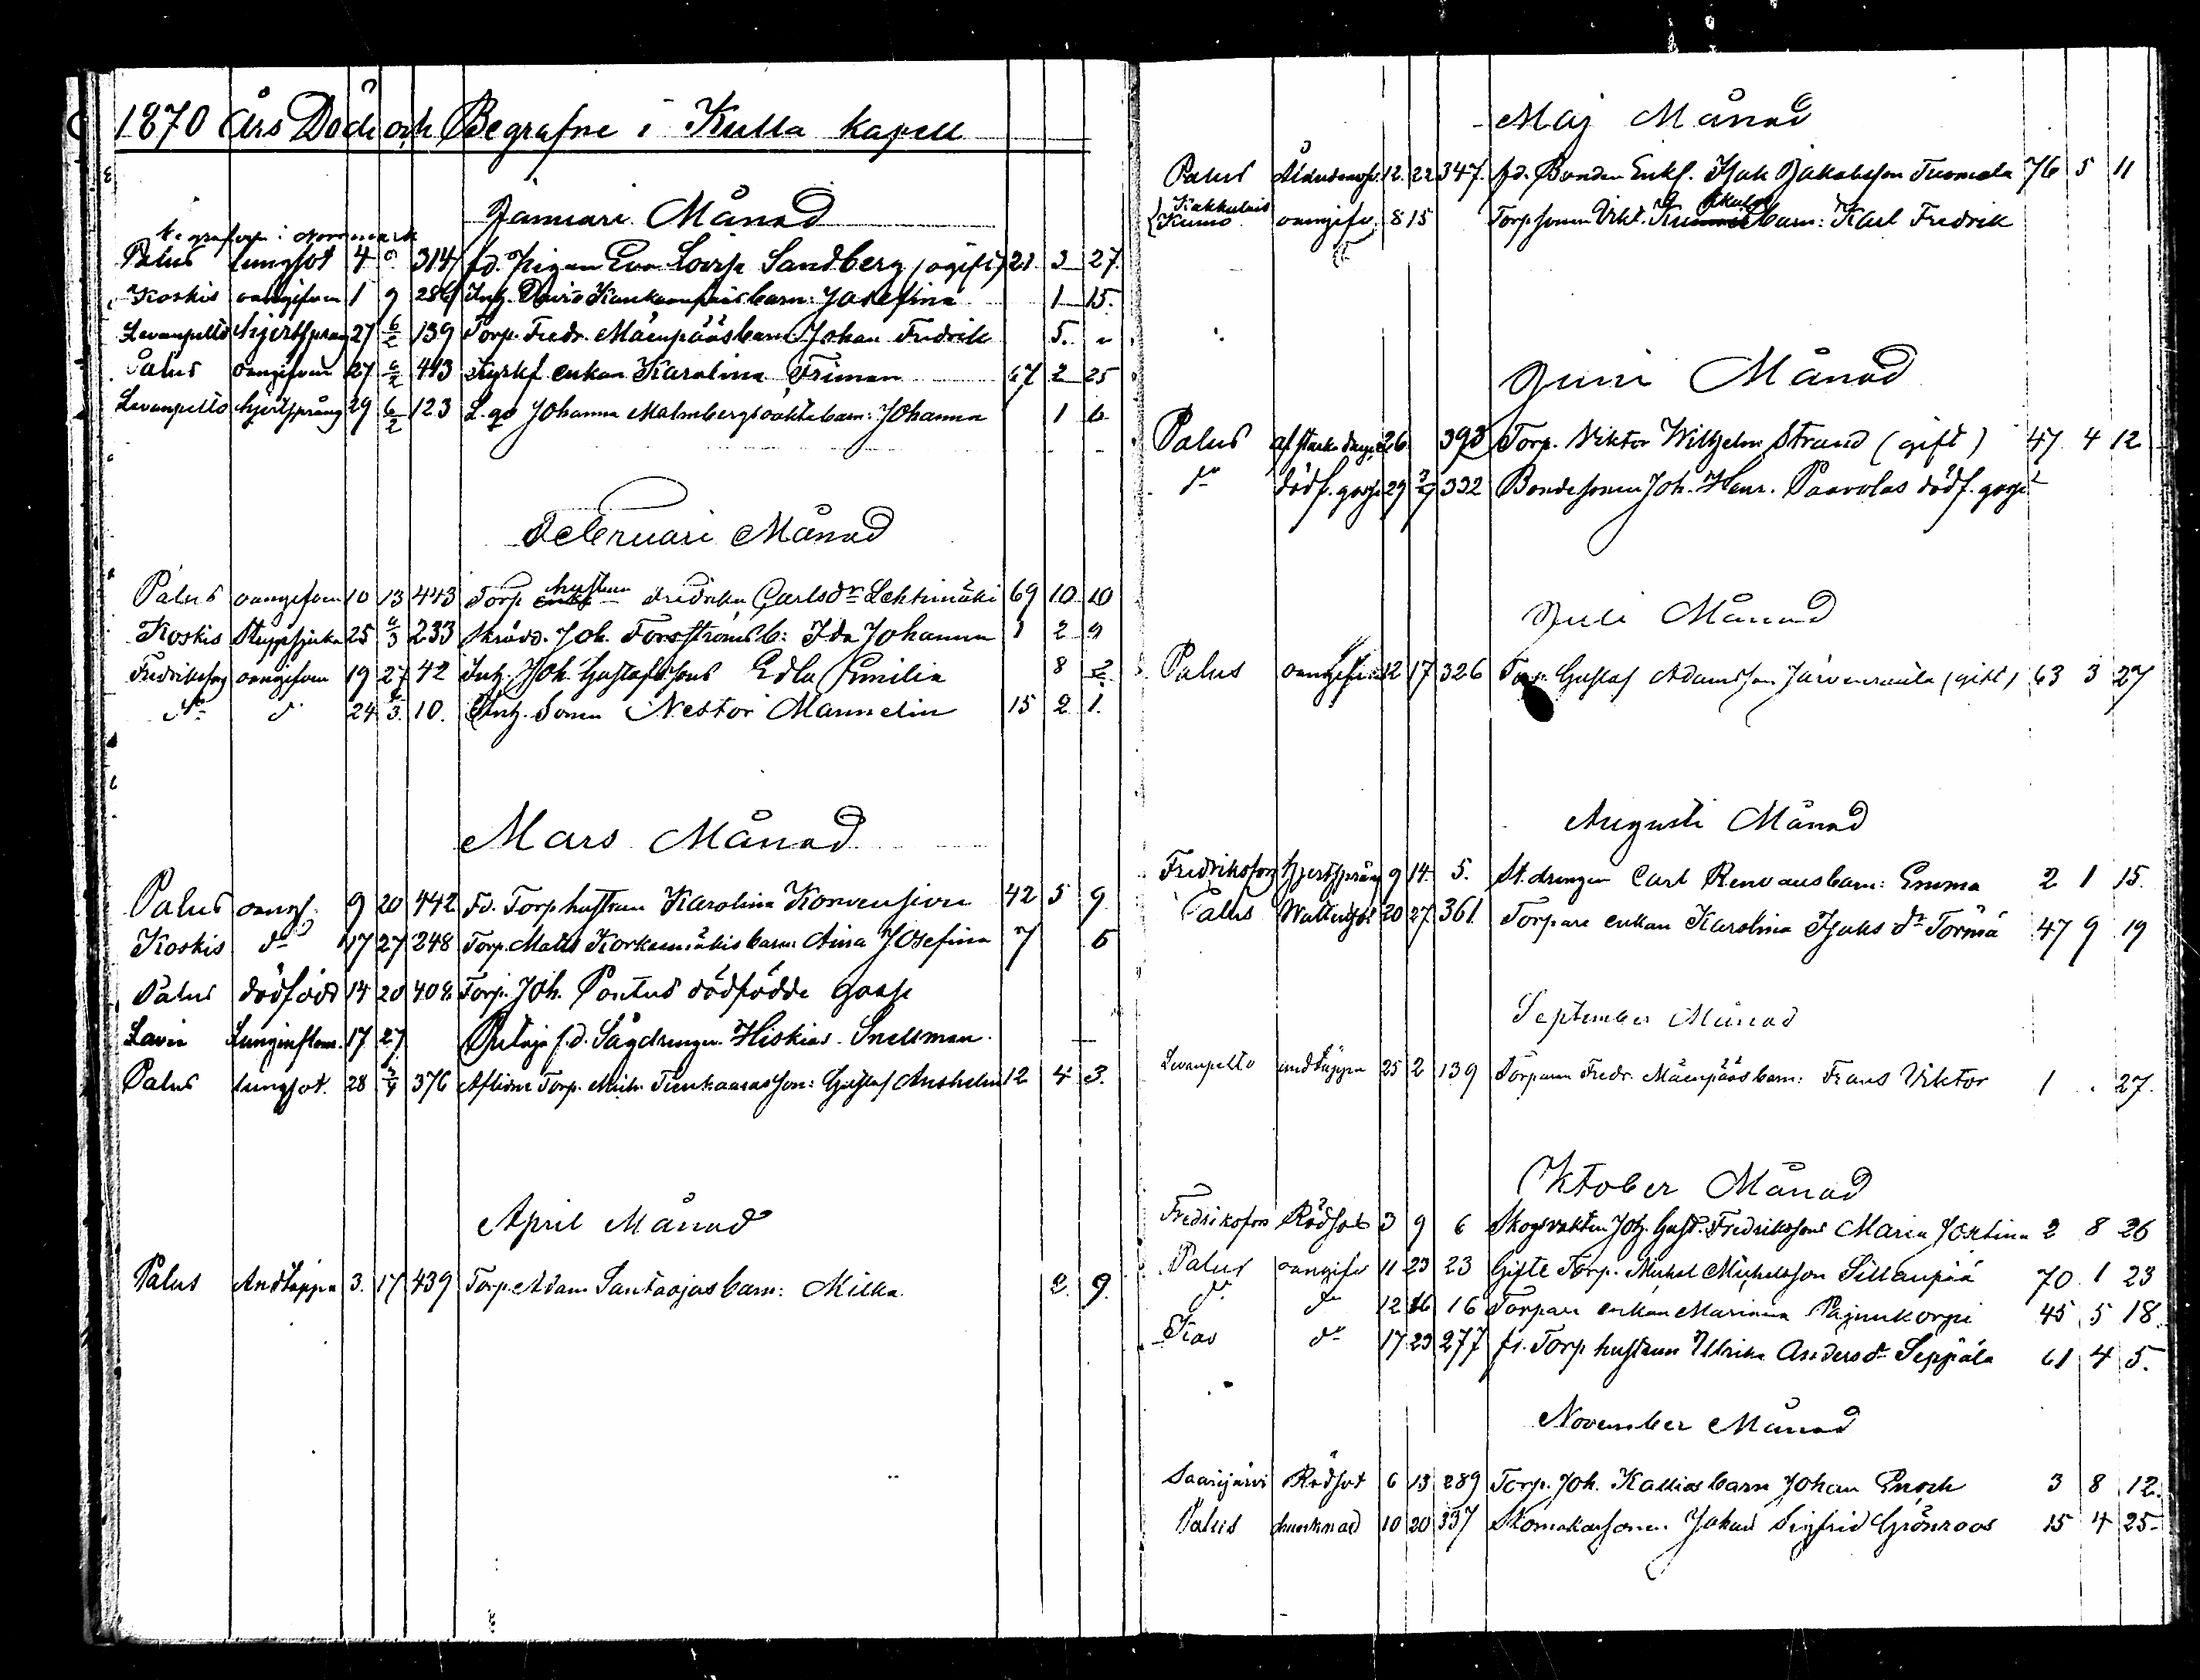 1870 Års Döde och Begrafne i Kulla kapell
Januari Månad
Begrafven i Norrmark
Palus lungsot 4 9 314 fd. Pigan Eva Lovisa Sandberg (ogift) 21 3 27.
Koskis oangifven 1 9 286 Inh. David Kankaanpääs barn: Josefina 1 15.
Levanpelto hjertsprång 27 6/2 139 Torp. Fredr. Mäenpääs barn Johan Fredrik 5. "
Palus oangifven 27 6/2 443 Kyrkf enkan Karolina Friman 67 2 25
Levanpelto hjertsprång 29 6/2 123 L.qv Johanna Malmbergs oäkta barn: Johanna 1 6
Februari Månad
Palus oangifven 10 13 443 Torp hustrun Fredrika Carlsdr Lehtimäki 69 10 10
Koskis Strypsjuka 25 6/3 233 Skrädd. Joh. Forsströms b: Ida Johanna 1 2 9
Fredriksfors oangifven 19 27 42 Inh. Joh. Gustafssons Edla Emilia 8 2.
do do 24 6/3 10. Inh. Sonen Nestor Mannelin 15 2 1.
Mars Månad
Palus oangf. 9 20 442 Fd. Torp hustrun Karolina Korvensivu 42 5 9
Koskis do 17 27 248 Torp. Matts Korkeamäkis barn Aina Josefina 7 6
Palus dödfödd 14 20 408 Torp. Joh. Pontus dödfödde gosse
Lavia Lunginflam. 17 27 f.d. Sågdrengen Hiskias Snellman
Palus lungsot. 28 3/4 376 Aflidne Torp. Mich. son: Gustaf Anshelm 12 4 3.
April Månad
Palus Andtäppa 3. 17 439 Torp. Adam Santaojas barn: Milka 2. 9.
Maj Månad
Palus Ålderdomsv. 12. 22 347. fd. Bonden Enkl. Isak Jakobsson Tuomola 76 5 11
Kakkulais
Kumo oangifv. 8 15 Torpsonen Vikt. barn: Karl Fredrik
Juni Månad
Palus af starka drycker 26 393 Torp. Viktor Wilhelm Strand (gift) 47 4 12
do dödf. gosse 29 3/7 332 Bondesonen Joh. Henr. Paavolas dödf. gosse
Juli Månad
Palus oangifven 12 17 326 Torp. Gustaf Adamsson Järvenraula (gift) 63 3 27
Augusti Månad
Fredriksfors hjertsprång 9 14 5. St. drengen Carl Renvaus barn: Emma 2 1 15.
Palus Wattusot 20 27 361 Torpare enkan Karolina Isaks dr Törmä 47 9 19
September Månad
Levanpelto andtäppa 25 2 139 Torparen Fredr. Mäenpääs barn: Frans Viktor 1 . 27.
Oktober Månad
Fredriksfors Rödsot 3 9 6 Skogsvakten Joh. Gust. Fredrikssons Maria Justina 2 8 26
Palus oangifv 11 23 23 Gifte Torp. Mikel Michelsson Sillanpää 70 1 23
do do 12 16 16 Torpare enkan Marianna Pajunkorpi 45 5 18.
do 17 23 277 fd. Torp hustrun Ulrika Anders dr Seppälä 61 4 5.
November Månad
Saarijärvi Rödsot 6 13 289 Torp. Joh. Kallios barn Johan Enoch 3 8 12.
Palus 10 20 337 Skomakarsonen Johan Sigfrid Grönroos 15 4 25.